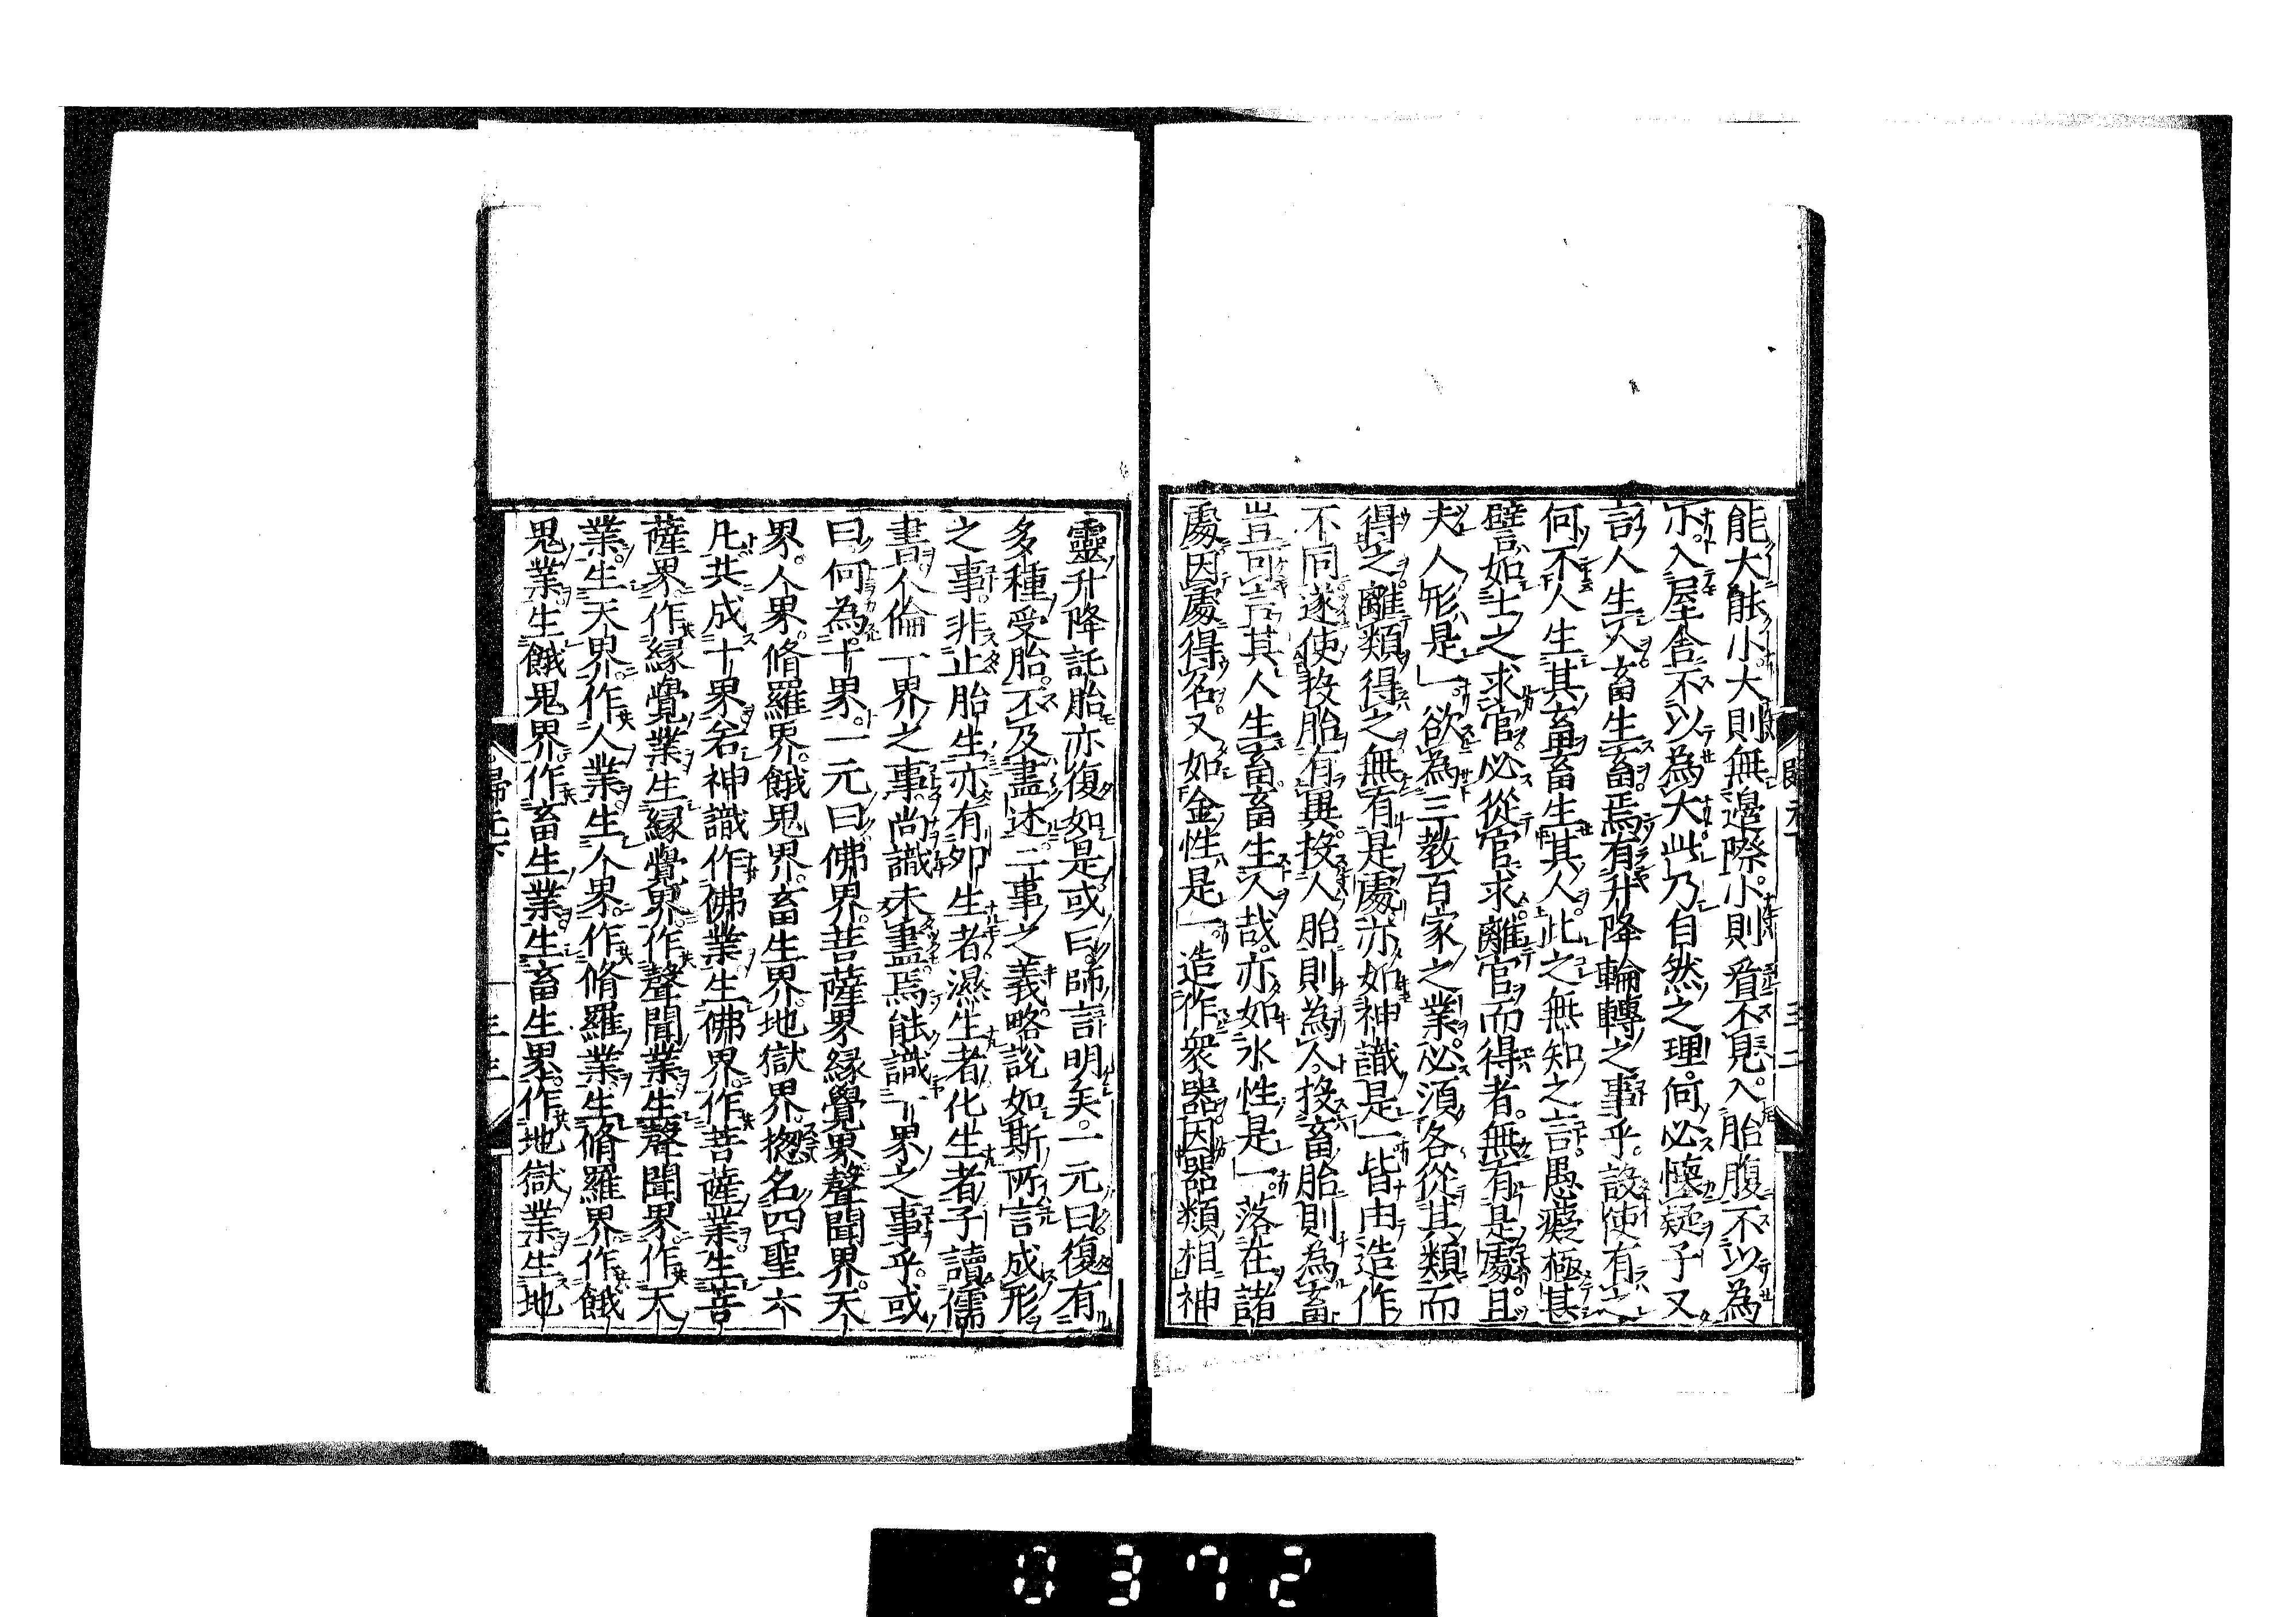 能大能小大則無邊際小則看不見入胎腹不以為
小入屋舎不以為大此乃自然之理何必懐疑子又
言人生人畜生畜焉有升降輪轉之事乎設使有之
何不人生其畜畜生其人此之無知之言愚癡極甚
譬如士之求官必從官求離官而得者無有是處且
夫人形是一欲為三教百家之業必須各從其類而
得之離類得之無有是處亦如神識是一皆由造作
不同遂使投胎有異投人胎則為人投畜胎則為畜
豈可言其人生畜畜生人哉亦如水性是一落在諸
處因處得名又如金性是一造作衆器因器類相神
靈升降託胎亦復如是或曰師言明矣一元曰復有
多種受胎不及盡述二事之義略說如斯所言成形
之事非止胎生亦有卵生者濕生者化生者子讀儒
書人倫一界之事尚識未盡焉能識十界之事乎或
曰何為十界一元曰佛界菩薩界縁覺界聲聞界天
界人界脩羅界餓鬼界畜生界地獄界捴名四聖六
凡共成十界若神識作佛業生佛界作菩薩業生菩
薩界作縁覺業生縁覺界作聲聞業生聲聞界作天
業生天界作人業生人界作脩羅業生脩羅界作餓
鬼業生餓鬼界作畜生業生畜生界作地獄業生地
歸元下
0372